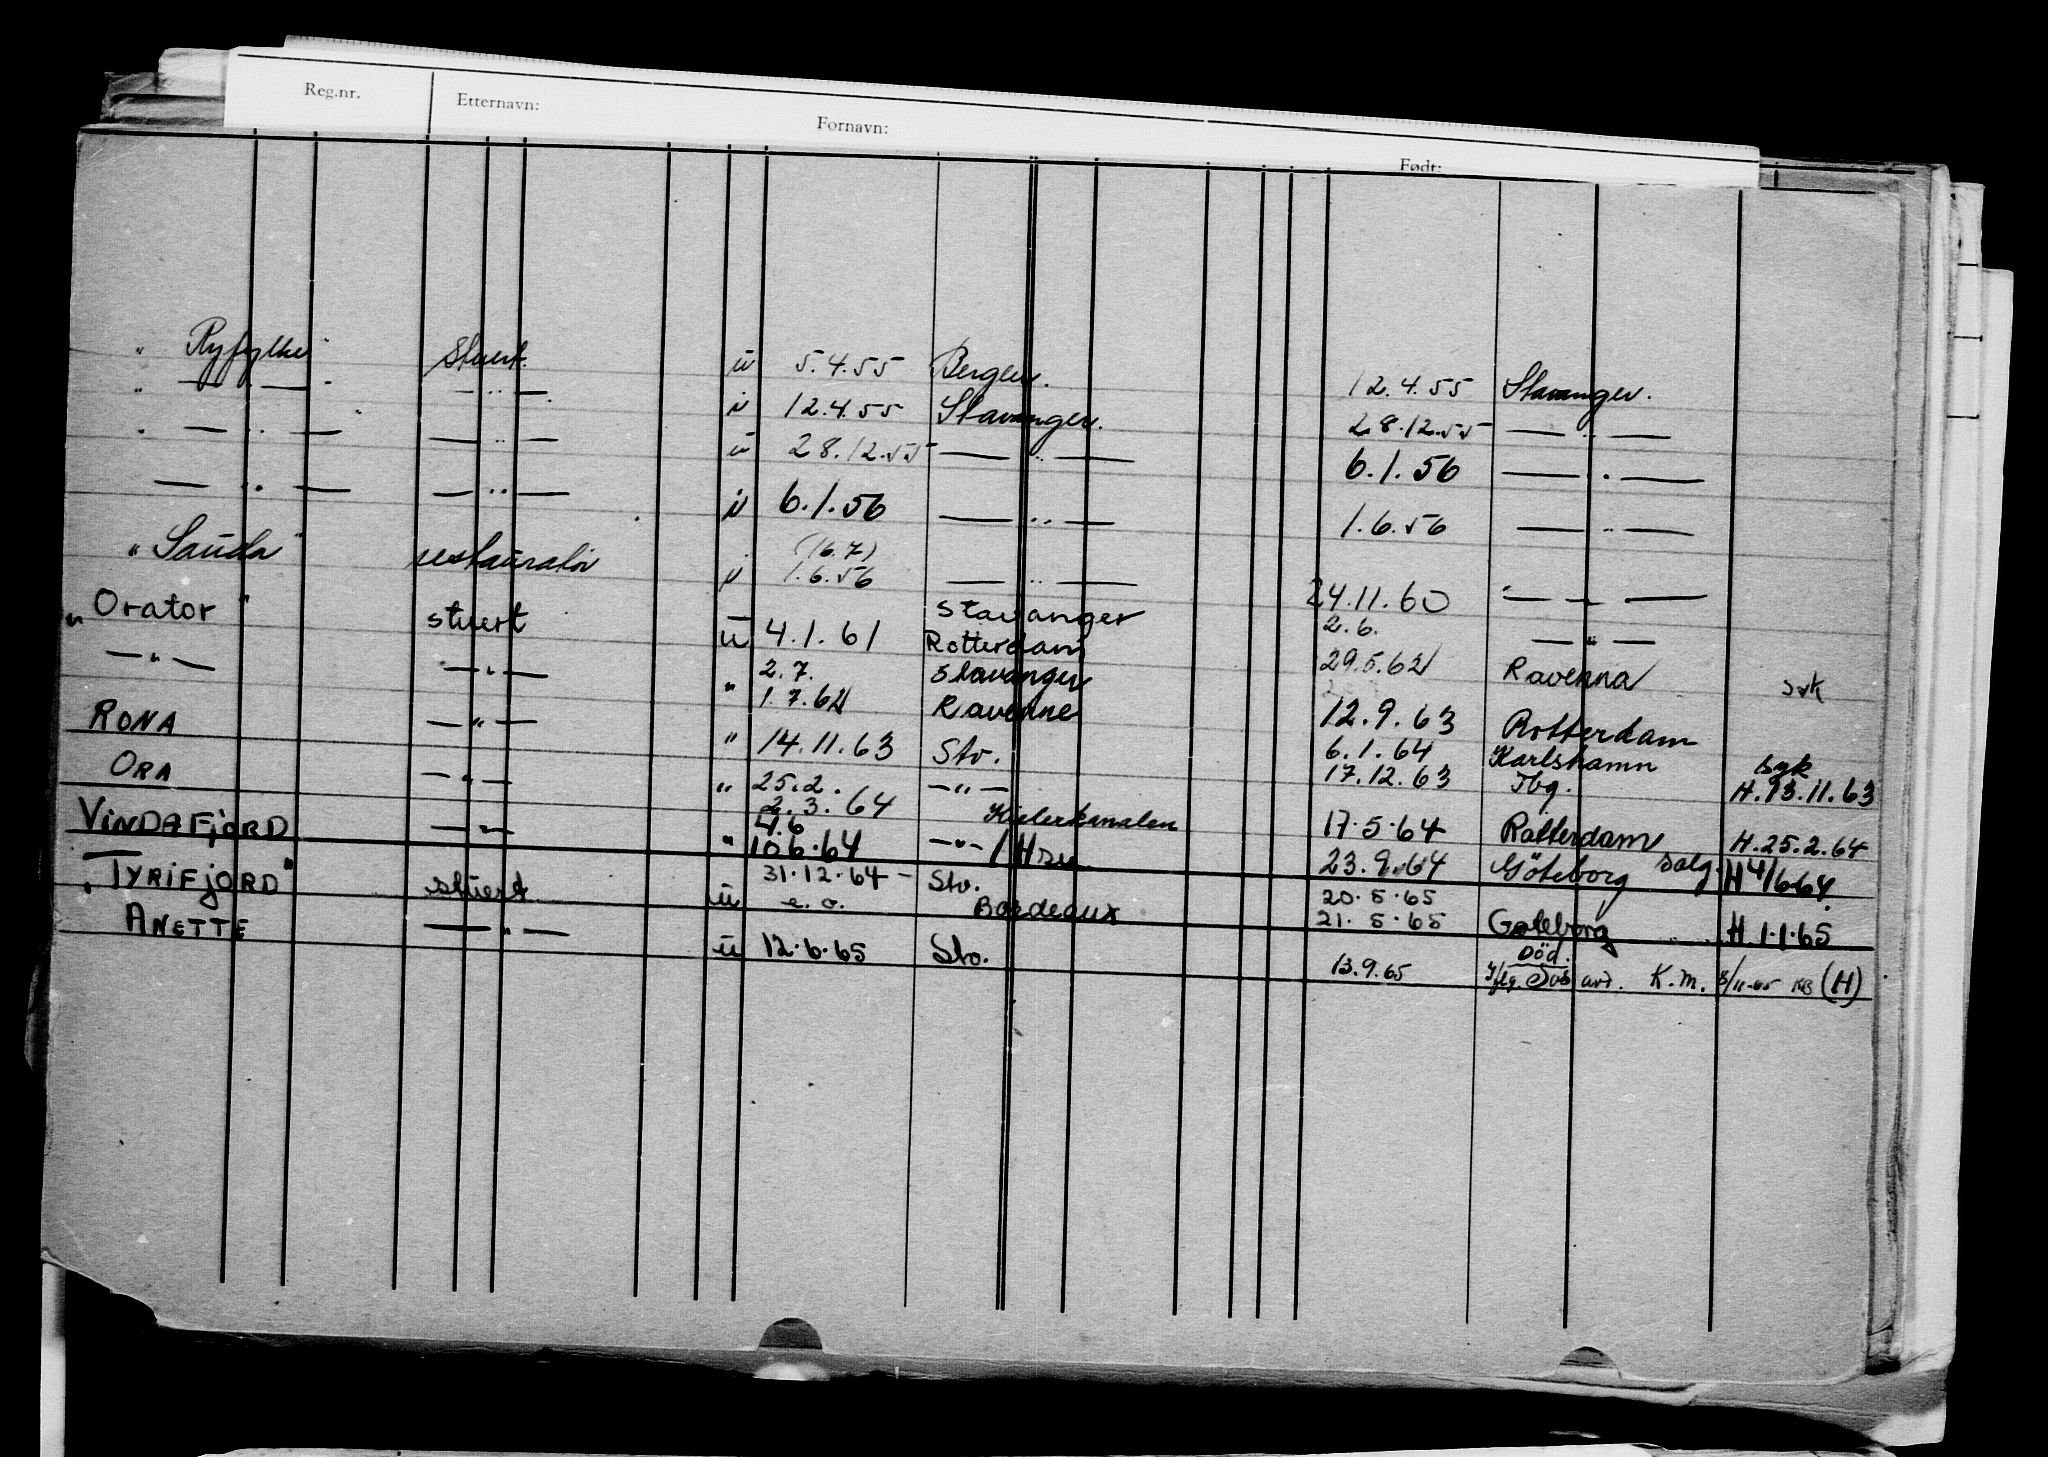 Reg.nr. Etternavn: Fornavn: Født:
" Ryfylke " Stuert. ü 5.4.55 Bergen. 12.4.55 Stavanger.
" — " — " — " — ü 12.4.55 Stavanger. 28.12.55 — " —
" — " — — " — ü 28.12.55 — " — 6.1.56 — " —
— " — — " — ü 6.1.56 — " — 1.6.56 — " —
" Sauda " restauratør ü (16.7) 1.6.56 — " — 24.11.60 — " —
" Orator " stuert ü 4.1.61 Stavanger Rotterdam 2.6. — " —
— " — — " — " 2.7. 1.7.62 Stavanger Ravenne 29.5.62 Ravenna syk
RONA — " — " 14.11.63 Stv. 12.9.63 Rotterdam
ORA — " — " 25.2. 2.3.64 — " — 6.1.64 Karlshamn syk
17.12.63 Tbg. H.13.11.63
VINDAFJORD — " — " 4.6 10.6.64 Kielerkanalen — " — 17.5.64 Rotterdam H.25.2.64
23.9.64 Göteborg salg H 4/6 64
" TYRIFJORD " stuert ü 31.12.64 — e.o. Stv. Bordeaux 20.5.65
21.5.65 Gøteborg H.1.1.65
ANETTE — " — ü 12.6.65 Stv. 13.9.65 Död.
I flg. avd. K.M. 8/11-65 (H)